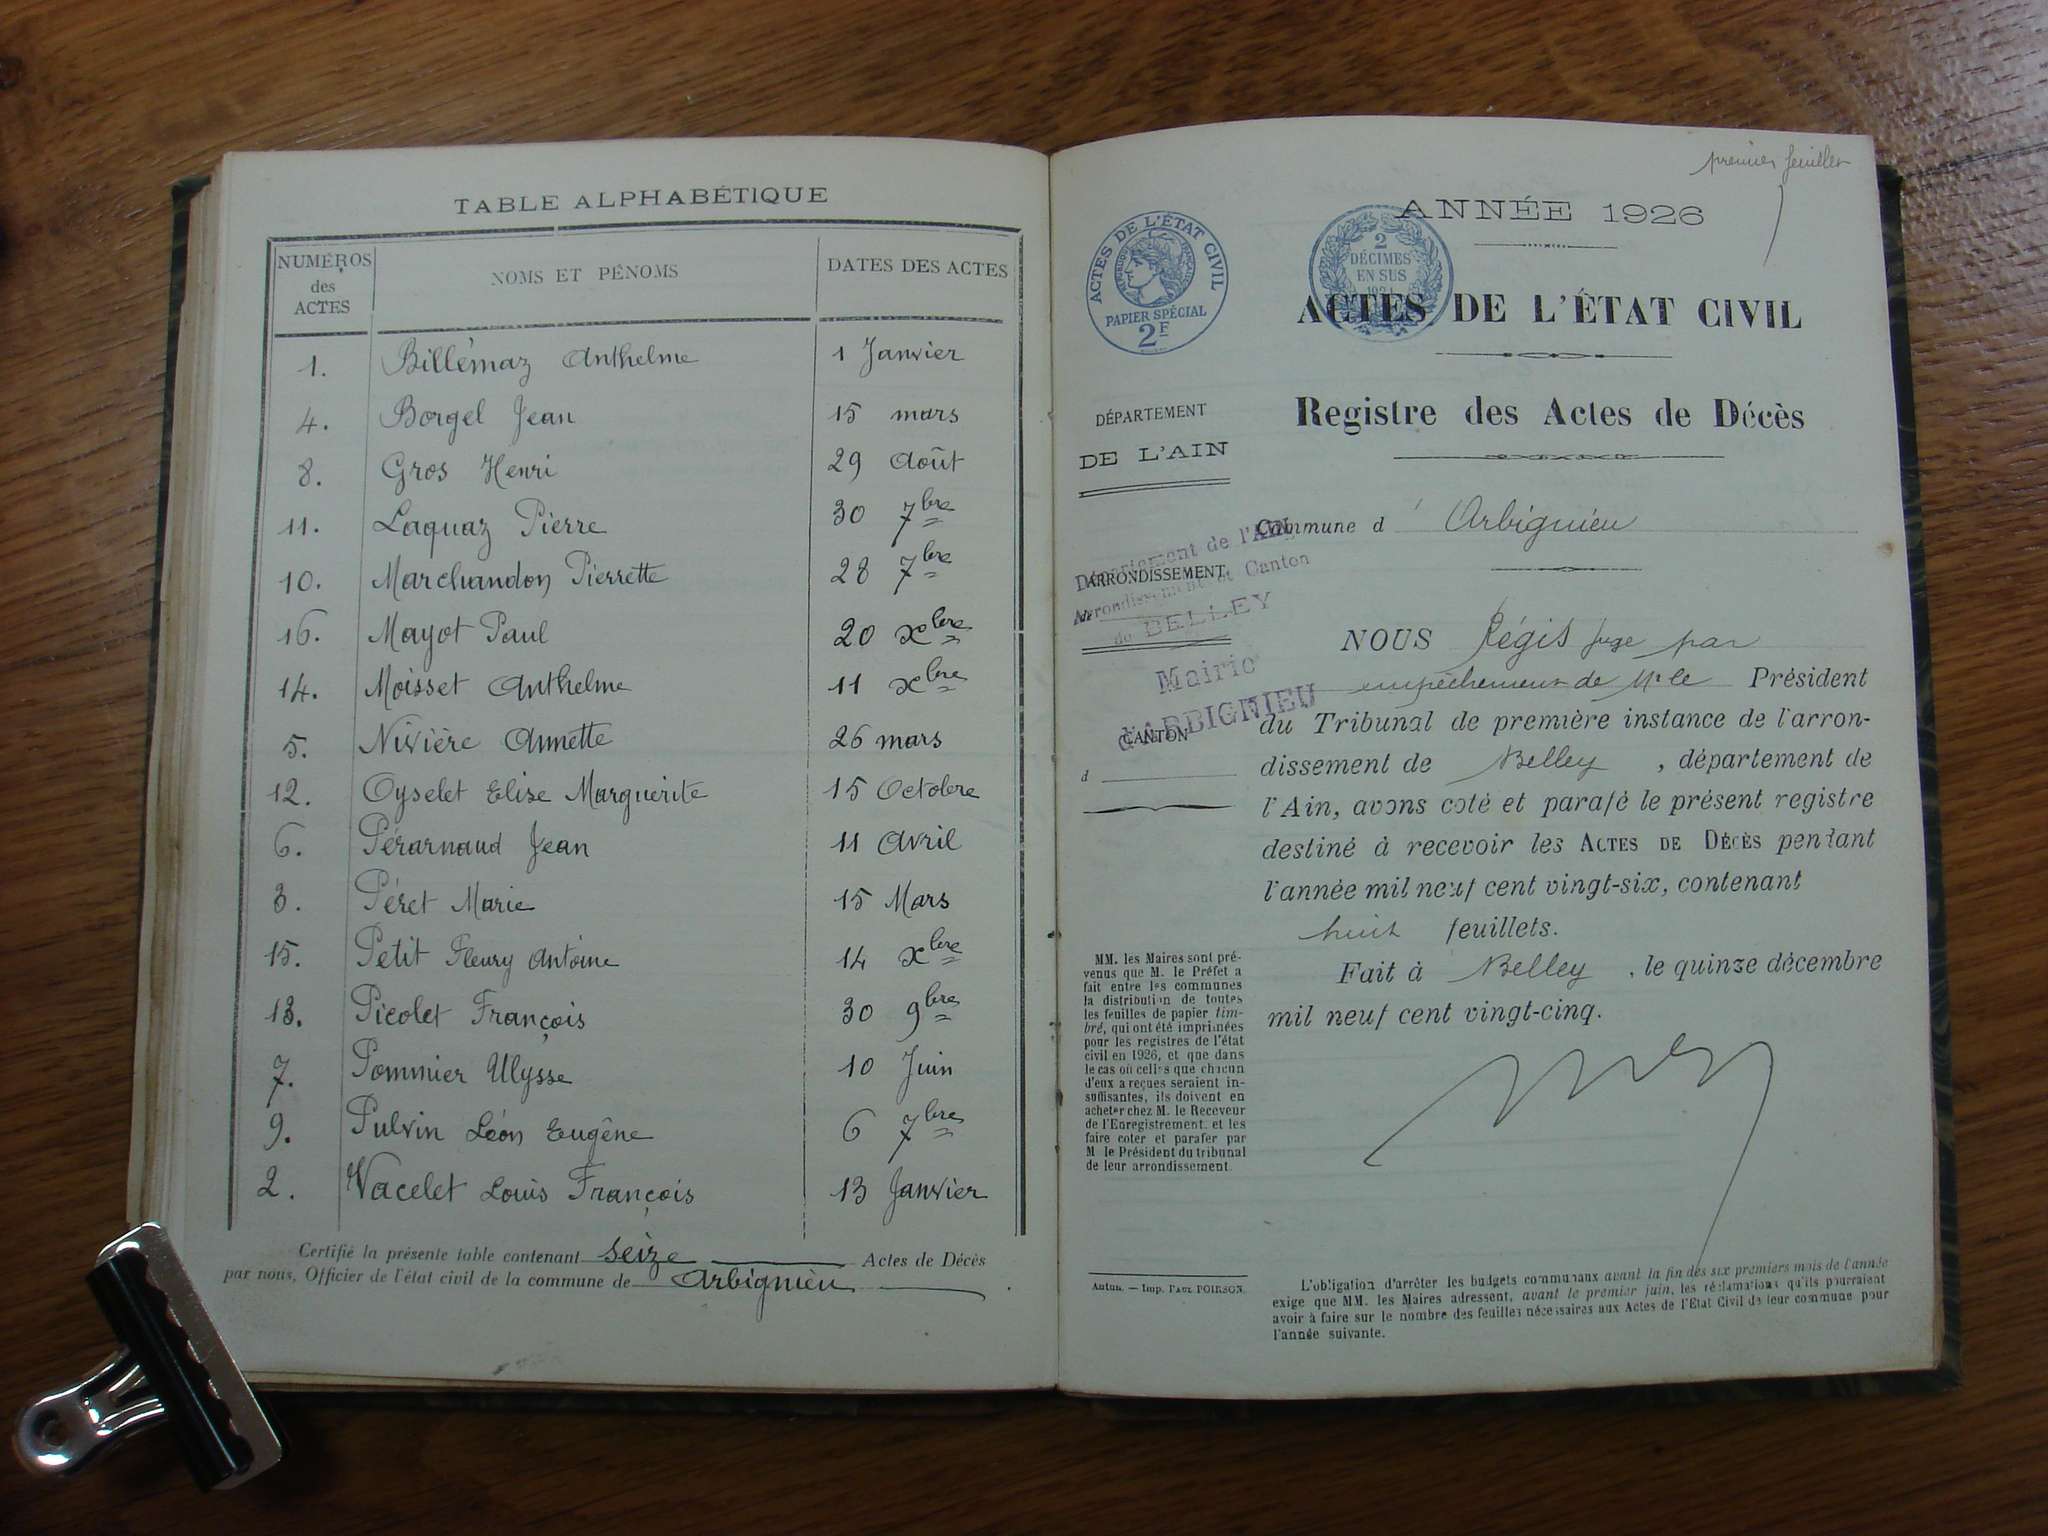 TABLE ALPHABÉTIQUE
NUMÉROS des ACTES NOMS ET PÉNOMS DATES DES ACTES
1. Billémaz Anthelme 1 Janvier
4. Borgel Jean 15 mars
8. Gros Henri 29 Août
11. Laquaz Pierre 30 7bre
10. Marchandon Pierrette 28 7bre
16. Mayot Paul 20 xbre
14. Moisset Anthelme 11 xbre
5. Nivière Annette 26 mars
12. Oyselet Elise Marguerite 15 Octobre
6. Pérarnaud Jean 11 Avril
3. Péret Marie 15 Mars
15. Petit Fleury Antoine 14 xbre
13. Picolet François 30 9bre
7. Pommier Ulysse 10 Juin
9. Pulvin Léon Eugène 6 7bre
2. Vacelet Louis François 13 Janvier
Certifié la présente table contenant seize Actes de Décès
par nous, Officier de l'état civil de la commune de Arbignieu
premier feuillet
ANNÉE 1926
ACTES DE L'ÉTAT CIVIL
PAPIER SPÉCIAL
2F
2
DÉCIMES
EN SUS
ACTES DE L'ÉTAT CIVIL
Registre des Actes de Décès
DÉPARTEMENT
DE L'AIN
Commune d' Arbignieu
Département de l'Ain
ARRONDISSEMENT
Arrondissement et Canton
de BELLEY
Mairie
d'ARBIGNIEU
CANTON
d
NOUS Régis juge par
empêchement de Mr le Président
du Tribunal de première instance de l'arron-
dissement de Belley, département de
l'Ain, avons coté et parafé le présent registre
destiné à recevoir les ACTES DE DÉCÈS pendant
l'année mil neuf cent vingt-six, contenant
huit feuillets.
Fait à Belley, le quinze décembre
mil neuf cent vingt-cinq.
MM. les Maires sont pré-
venus que M. le Préfet a
fait entre les communes
la distribution de toutes
les feuilles de papier tim-
bré, qui ont été imprimées
pour les registres de l'état
civil en 1926, et que dans
le cas où celles que chacun
d'eux a reçues seraient in-
suffisantes, ils doivent en
acheter chez M. le Receveur
de l'Enregistrement, et les
faire coter et parafer par
M. le Président du tribunal
de leur arrondissement.
Autun. — Imp. PAUL POIRSON.
L'obligation d'arrêter les budgets communaux avant la fin des six premiers mois de l'année
exige que MM. les Maires adressent, avant le premier juin, les réclamations qu'ils pourraient
avoir à faire sur le nombre des feuilles nécessaires aux Actes de l'État Civil de leur commune pour
l'année suivante.